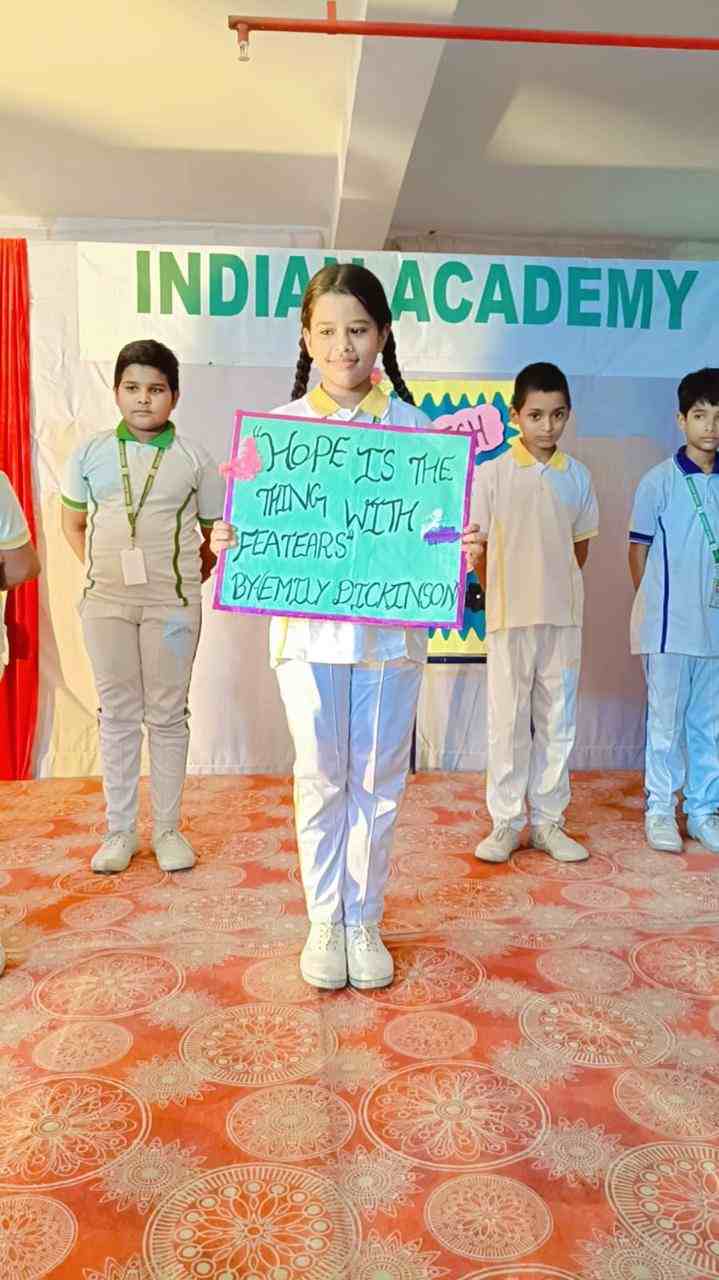 INDIAN ACADEMY
"HOPE IS THE
THING WITH
FEATEARS"
BY:EMILY DICKINSON